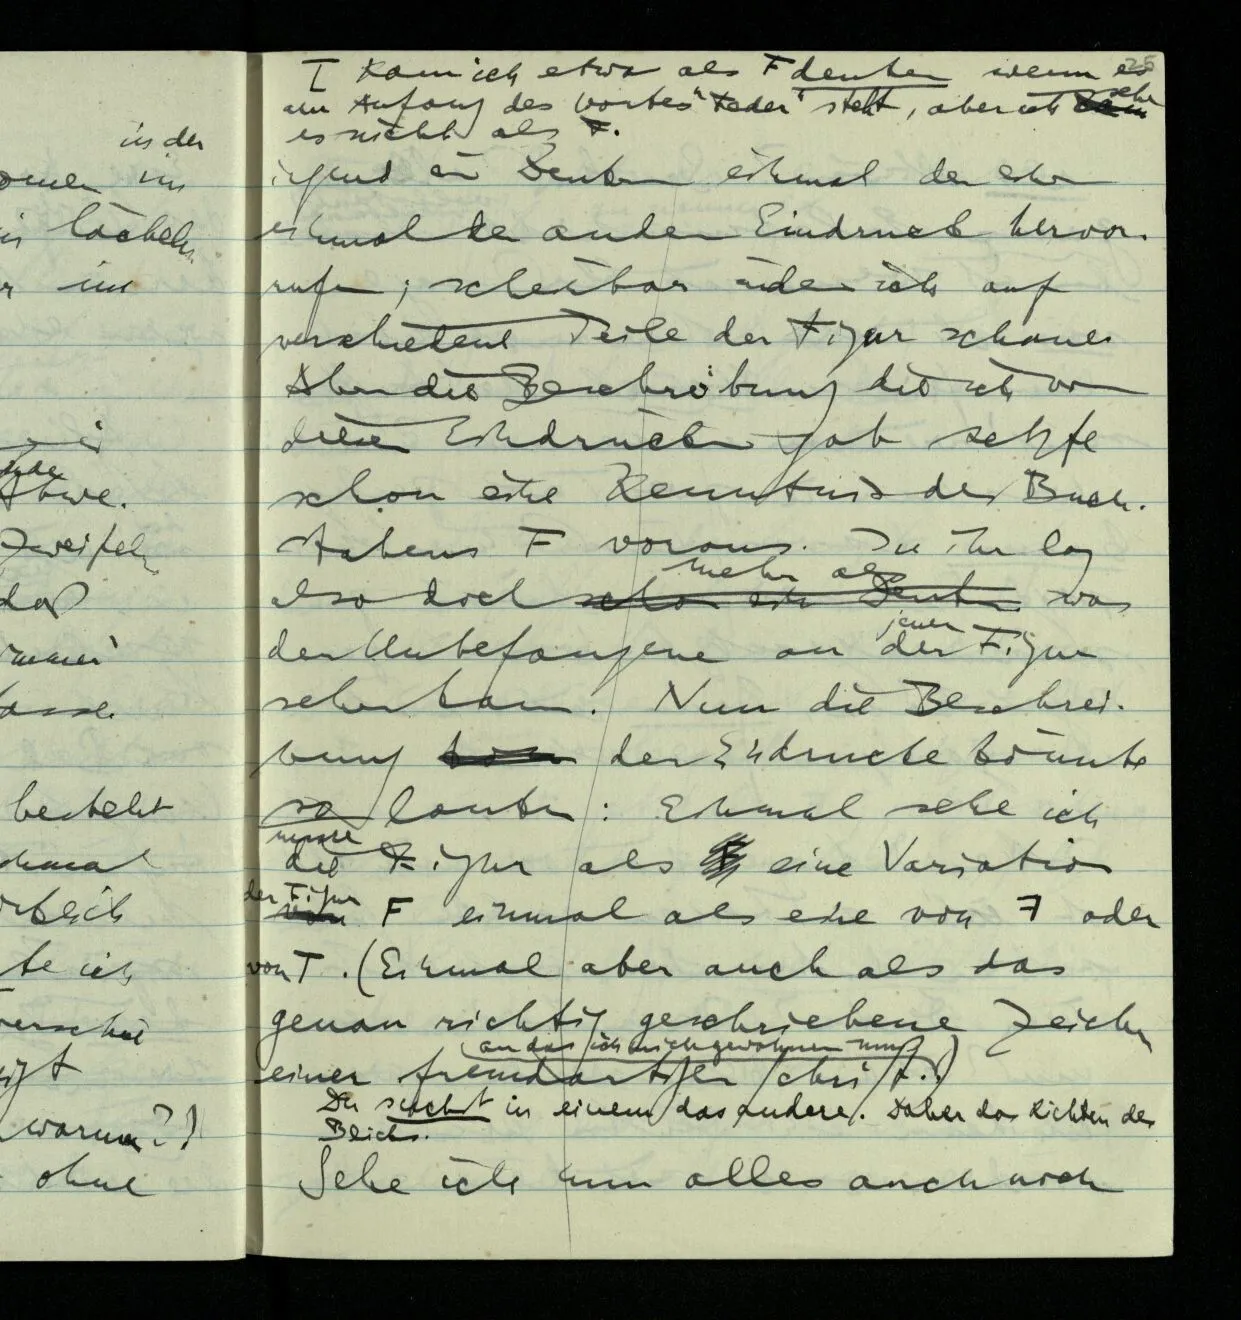 in der
omen im
lächeln
im
Zweifeln
daß
immer
besteht
te ich
warum?)
ohne
25
I kann ich etwa als F deuten wenn es
am Anfang des Wortes "Feder" steht, aber ich sehe
es nicht als F.
irgend ein Denken einmal den einen
einmal den andern Eindruck hervor-
rufen; scheinbar indem ich auf
verschiedene Teile der Figur schaue.
Aber die Beschreibung die ich von
diesen Eindrücken gab setzte
schon eine Kenntnis des Buch-
stabens F voraus. In ihr lag
mehr als
also doch schon ein Denken was
jener
der Unbefangene an der Figur
sehen kann. Nun die Beschrei-
bung der Eindrücke könnte
so lauten: Einmal sehe ich
unsre
die Figur als eine Variation
der Figur
von F einmal als eine von ꟻ oder
von T. (Einmal aber auch als das
genau richtig geschriebene Zeichen
an das ich mich gewöhnen muß)
einer fremdartigen Schrift.)
Du suchst in einem das andere. Daher das Richten des
Blicks.
Sehe ich nun alles auch noch